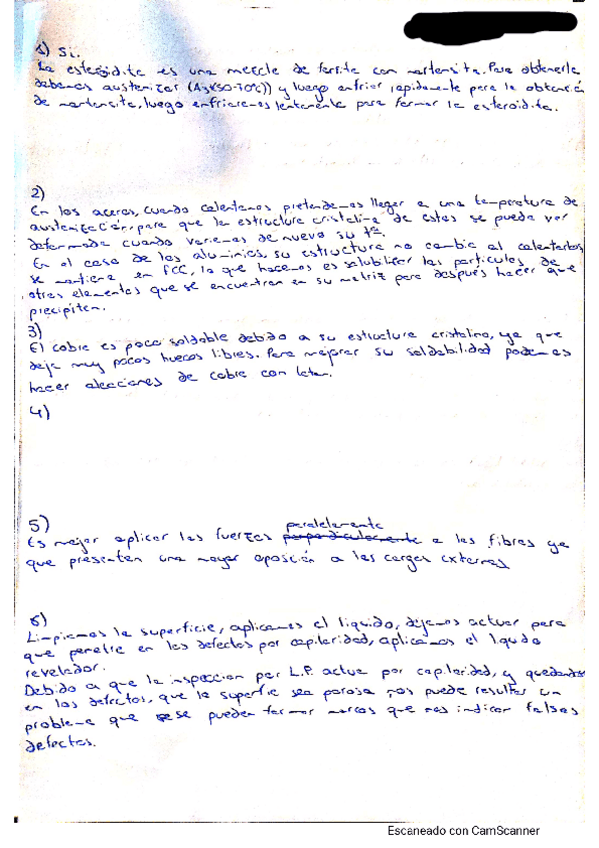 1) Si.
La esferoidita es una mezcla de ferrita con martensita. Para obtenerla
debemos austenizar (A3+(50-70ºC)) y luego enfriar rapidamente para la obtención
de martensita, luego enfriaremos lentamente para formar la esferoidita.
2)
En los aceros, cuando calentamos pretendemos llegar a una temperatura de
austenización, para que la estructura cristalina de estos se pueda ver
deformada cuando variemos de nuevo su tª.
En el caso de los aluminios, su estructura no cambia al calentarlos,
se mantiene en FCC, lo que hacemos es solubilizar las particulas de
otros elementos que se encuentran en su matriz para después hacer que
precipiten.
3)
El cobre es poco soldable debido a su estructura cristalina, ya que
deja muy pocos huecos libres. Para mejorar su soldabilidad podemos
hacer aleaciones de cobre con
4)
5)
Es mejor aplicar las fuerzas paralelamente a las fibras ya
que presentan una mayor oposición a las cargas externas
6)
Limpiamos la superficie, aplicamos el liquido, dejamos actuar para
que penetre en los defectos por capilaridad, aplicamos el liquido
revelador.
Debido a que la inspeccion por L.P. actua por capilaridad, y quedandose
en los defectos, que la superficie sea porosa nos puede resultar un
problema que se pueden formar marcas que nos indican falsos
defectos.
Escaneado con CamScanner